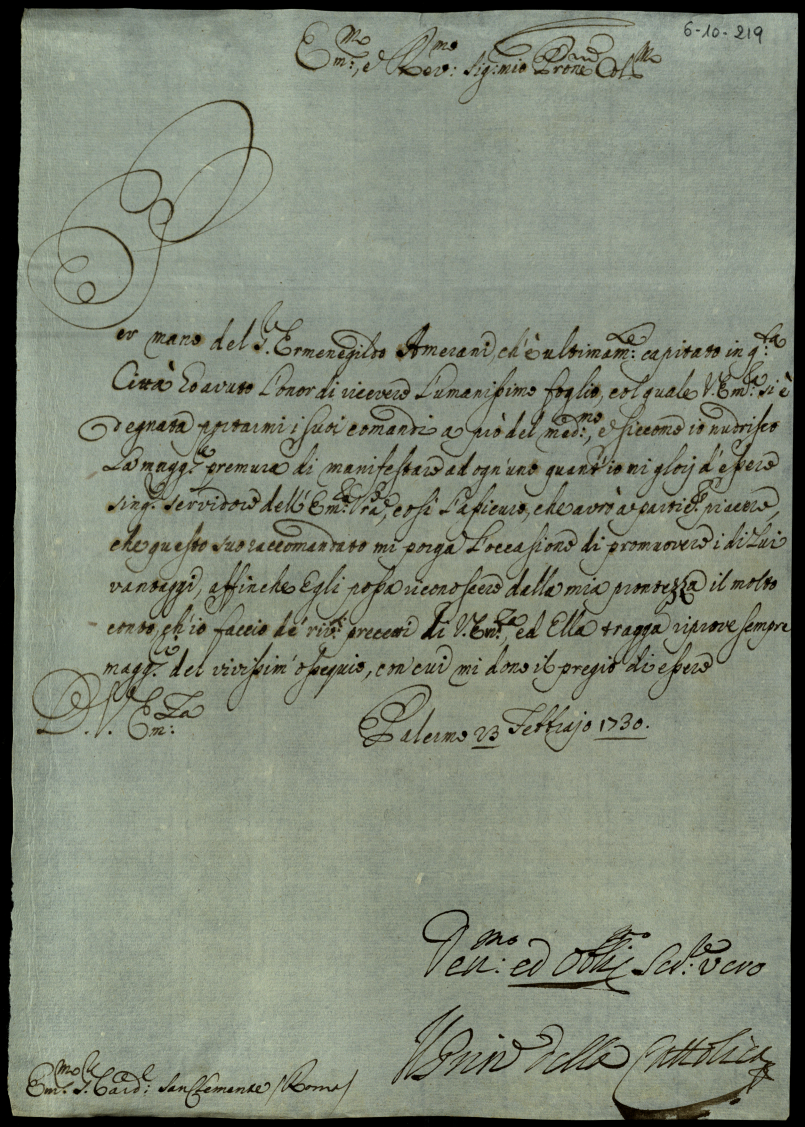 6-10-219
Em:mo, e Rev:mo Sig: mio Pron̄e Col:mo
Per mano del S.r Ermenegildo Amerani, ch'è ultimam:te capitato in q:sta
Città ho avuto l'onor di ricevere l'umanissimo foglio, col quale V. Em:za si è
degnata portarmi i suoi comandi a prò del med:mo, e siccome io nudrisco
la magg:r premura di manifestare ad ogn'uno quant'io mi glorij d'essere
sing:r servidore dell'Em:za V̄ra, così l'assicuro, che avrò a partic:r piacere,
che questo suo raccomandato mi porga l'occasione di promuovere i di Lui
vantaggi, affinche Egli possa riconoscere dalla mia prontezza il molto
conto, ch'io faccio de' riv:ti precetti di V. Em:za, ed Ella tragga riprove sempre
magg:ri del vivissim'ossequio, con cui mi dono il pregio di essere
D. V. Em:za
Palermo 23 Febbrajo 1730.
Dev:mo ed Obb:mo Ser:re vero
Il Prin:e della Cattolica
Em:mo S.r Card:le San Clemente / Roma /